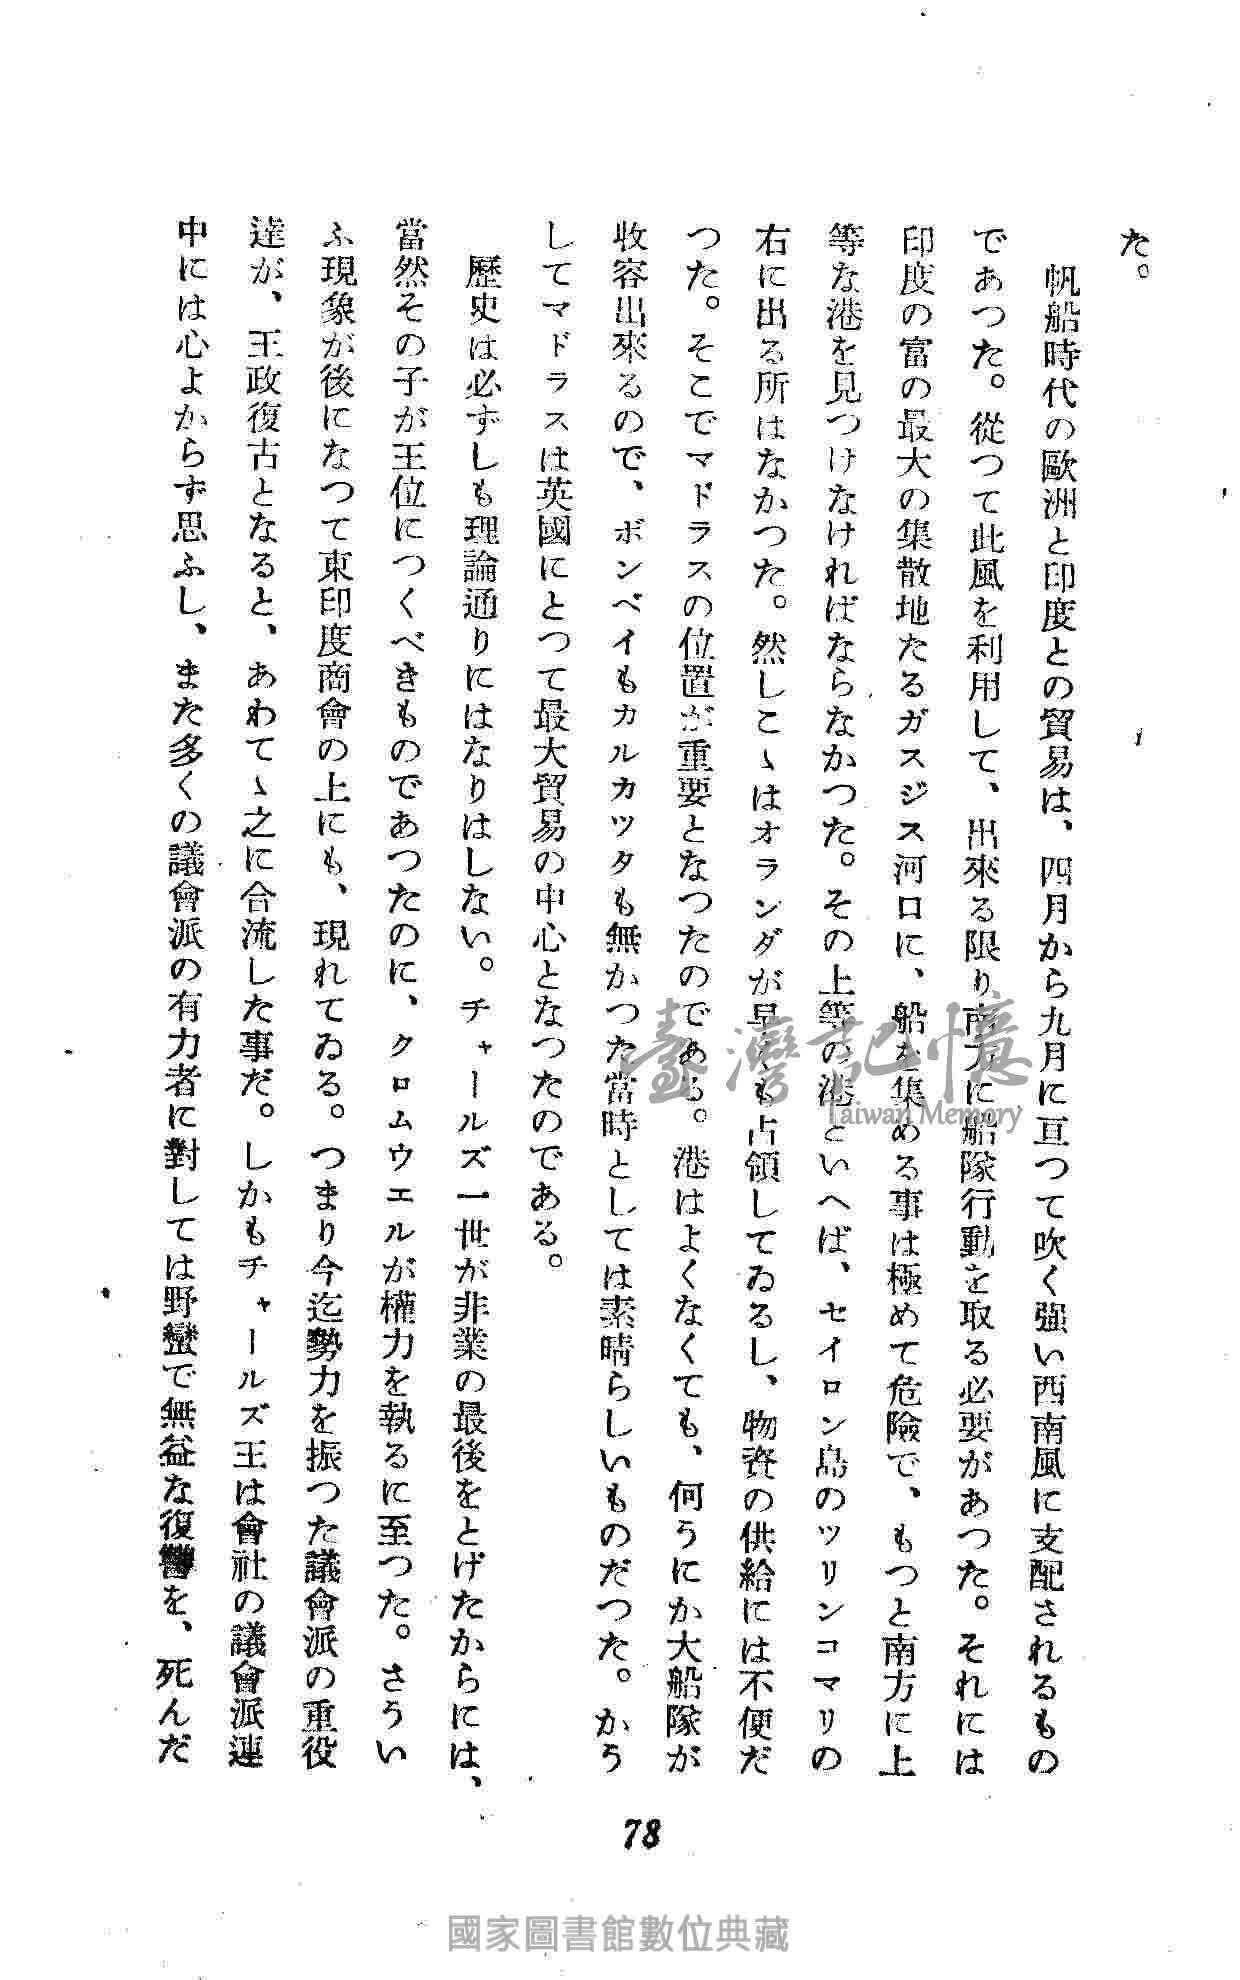 た。
帆船時代の歐洲と印度との貿易は、四月から九月に亘つて吹く强い西南風に支配されるもの
であつた。從つて此風を利用して、出來る限り南方に船隊行動を取る必要があつた。それには
印度の富の最大の集散地たるガスジス河口に、船を集める事は極めて危險で、もつと南方に上
等な港を見つけなければならなかつた。その上等の港といへば、セイロン島のツリンコマリの
右に出る所はなかつた。然しこゝはオランダが早くも占領してゐるし、物資の供給には不便だ
つた。そこでマドラスの位置が重要となつたのである。港はよくなくても、何うにか大船隊が
收容出來るので、ボンベイもカルカツタも無かつた當時としては素晴らしいものだつた。かう
してマドラスは英國にとつて最大貿易の中心となつたのである。
歷史は必ずしも理論通りにはなりはしない。チャールズ一世が非業の最後をとげたからには、
當然その子が王位につくべきものであつたのに、クロムウエルが權力を執るに至つた。さうい
ふ現象が後になつて東印度商會の上にも、現れてゐる。つまり今迄勢力を振つた議會派の重役
達が、王政復古となると、あわてゝ之に合流した事だ。しかもチャールズ王は會社の議會派連
中には心よからず思ふし、また多くの議會派の有力者に對しては野蠻で無益な復讐を、死んだ
78
臺灣記憶
Taiwan Memory
國家圖書館數位典藏